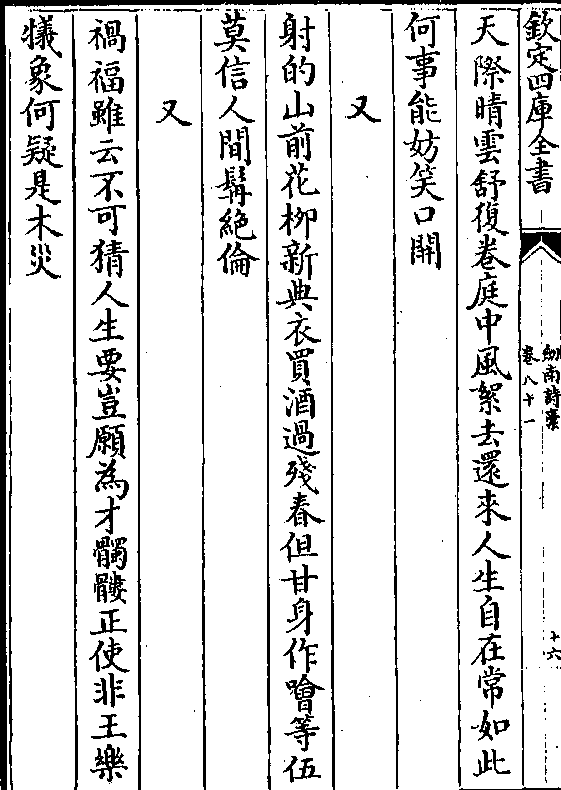 欽定四庫全書
南詩稾
卷八十一
十六
天際晴雲舒復卷庭中風絮去還來人生自在常如此
何事能妨笑口開
又
射的山前花柳新典衣買酒過殘春但甘身作噲等伍
莫信人間髯絶倫
又
禍福雖云不可猜人生要豈願為才髑髏正使非王樂
犧象何疑是木災